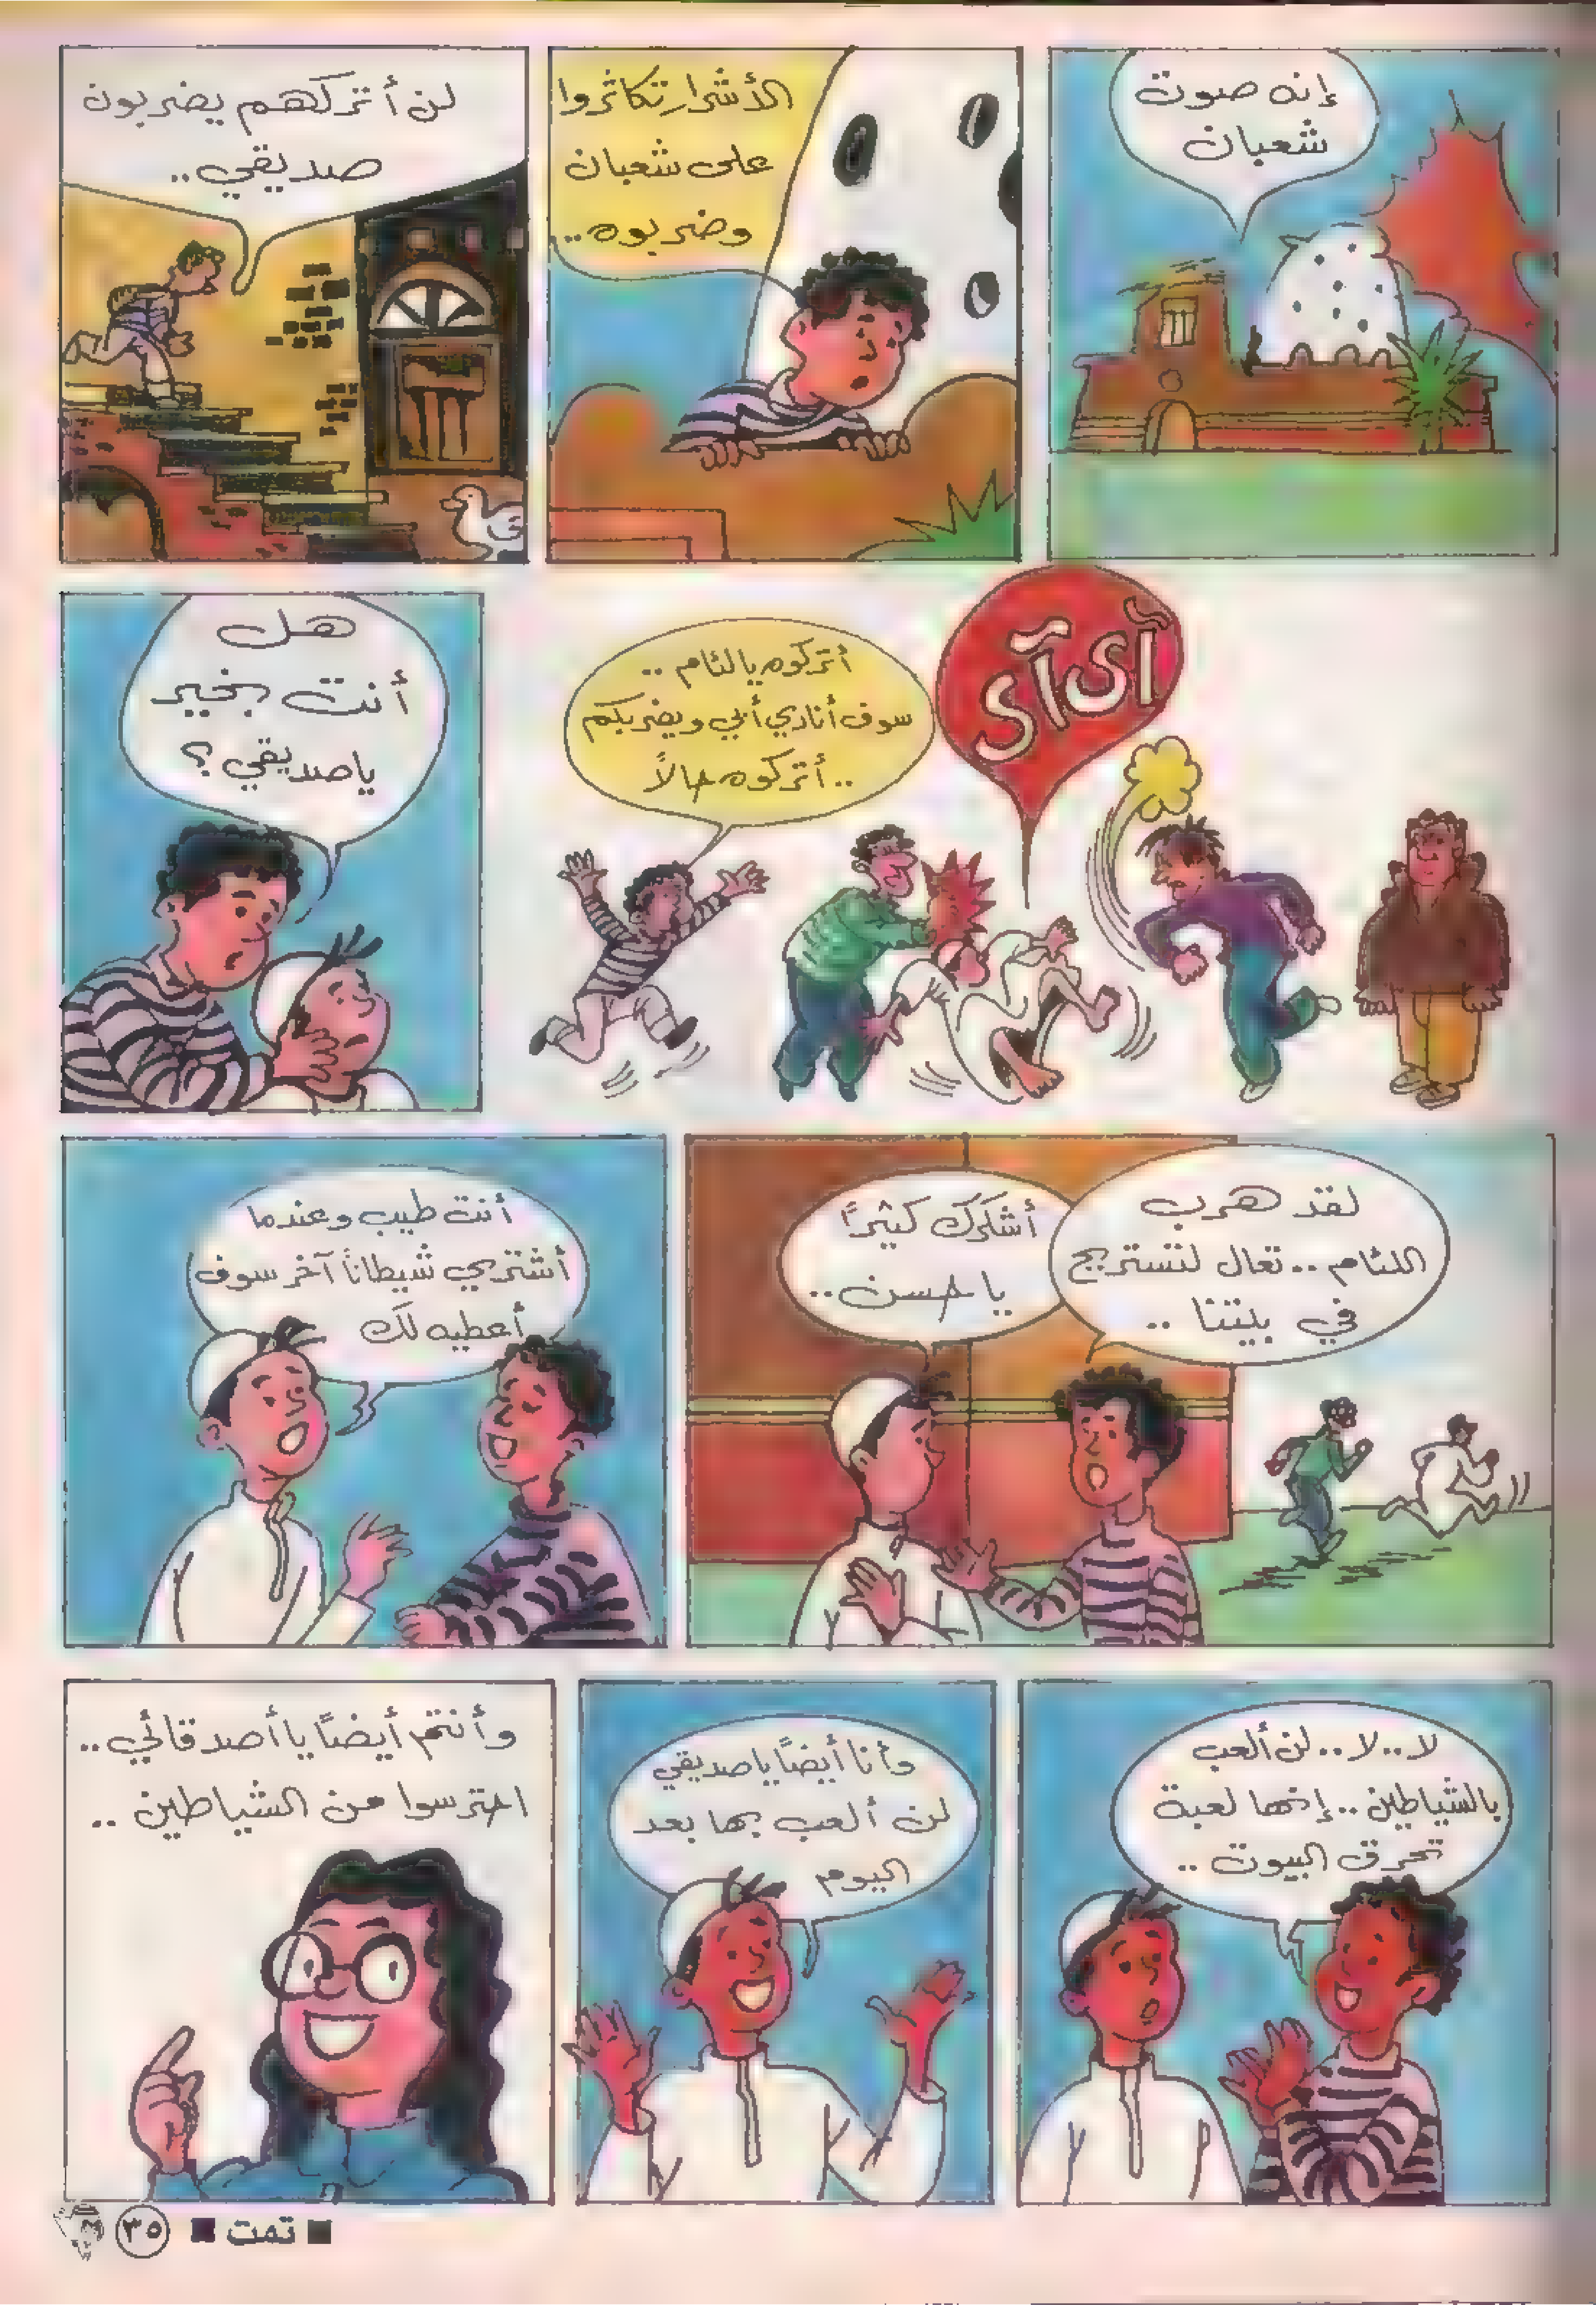 إنه صوت
شعبان
الأشرار تكاثروا
على شعبان
وضربوه..
لن أتركهم يضربون
صديقي..
آى آى
أتركوه يا لئام ..
سوف أنادي أبي ويضربكم
.. أتركوه حالاً
هل
أنت بخير
يا صديقي؟
لقد هرب
اللئام .. تعال لتستريح
في بيتنا ..
أشكرك كثيرًا
يا حسن..
أنت طيب وعندما
أشتري شيطاناً آخر سوف
أعطيه لك
لا..لا.. لن ألعب
بالشياطين .. إنها لعبة
تحرق البيوت ..
وأنا أيضًا يا صديقي
لن ألعب بها بعد
اليوم
وأنتم أيضًا يا أصدقائي..
احترسوا من الشياطين ..
■ تمت ■
٣٥